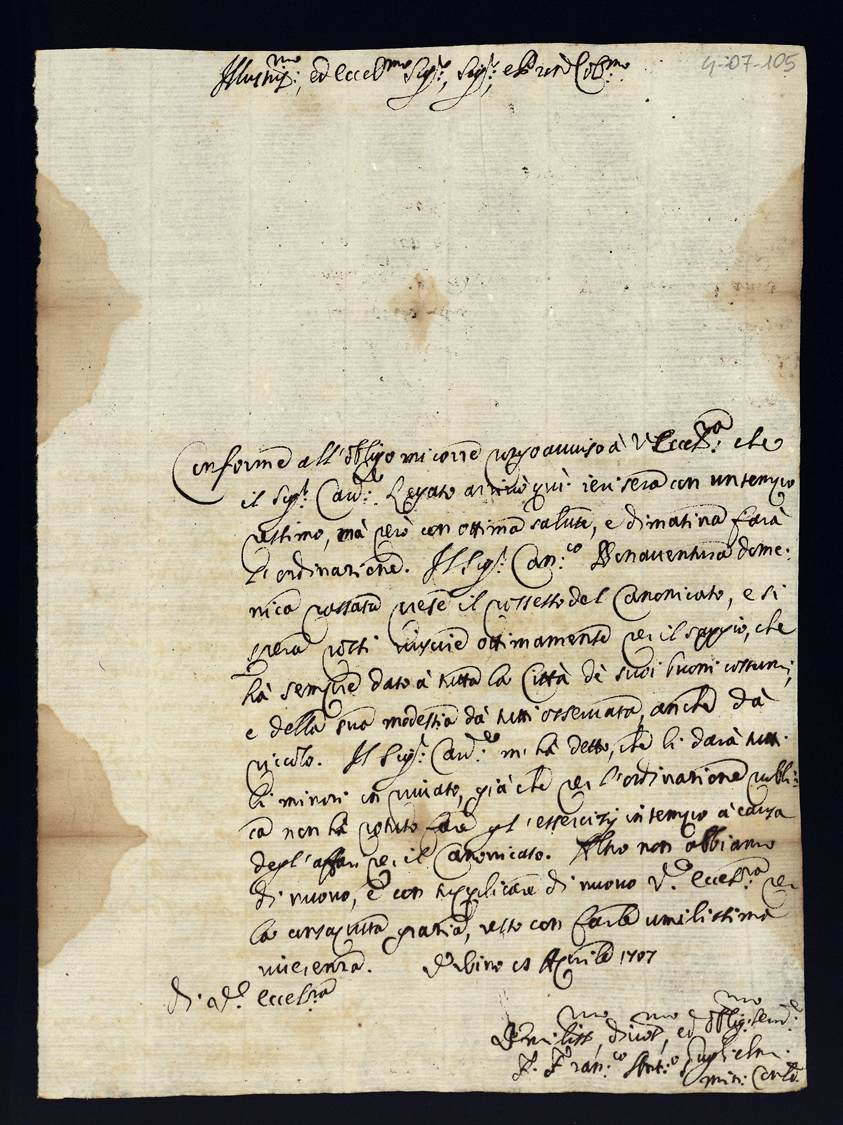 4-07-105
Illustriss:mo, ed Eccell:mo Sig:re, Sig:re, e Pron Col:mo
Conforme all'obligo mi corre porgo avviso à V: Eccell:za che
il Sig:r Card:le Legato arrivò quì ieri sera con un tempo
pessimo, mà però con ottima salute, e dimatina farà
l'ordinazione. Il Sig:r Can:co Bonaventura dome:
nica passata prese il possesso del Canonicato, e si
spera possi riuscire ottimamente per il saggio, che
hà sempre dato à tutta la Città de suoi buoni costumi,
e della sua modestia da tutti osservata, anche dà
piccolo. Il Sig:r Card:le mi hà detto, che li darà tutti
li minori in privato, già che per l'ordinazione publi:
ca non hà potuto fare gl'essercizij in tempo à causa
degl'affari per il Canonicato. Altro non abbiamo
di nuovo, e con supplicare di nuovo V:a Eccell:za per
la consaputa grazia, resto con farle umilissima
riverenza. Urbino Aprile 1707
Di V:a Eccell:za
Umiliss:mo, divot:mo, ed oblig:mo Serv:e
F. Fran:co Ant:o Guglielmi
min: Con:le